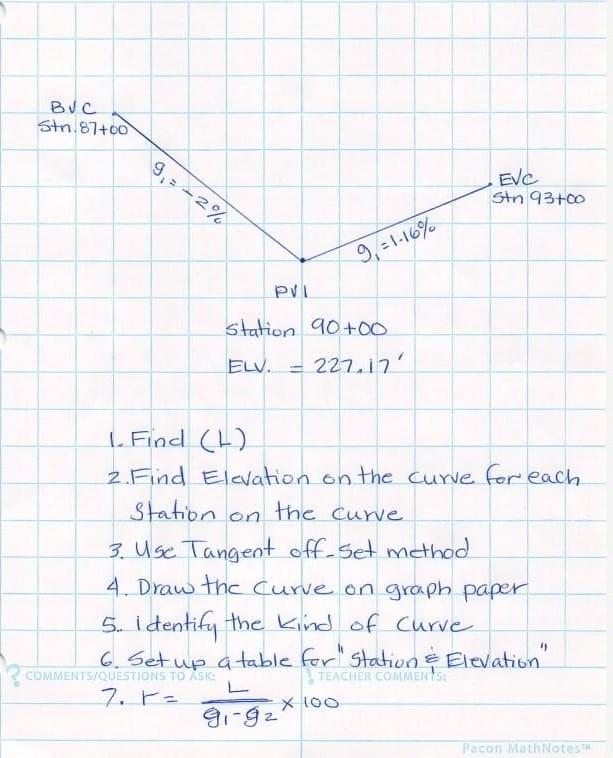 BVC
Stn.87+00
g₁ = -2%
EVC
Stn 93+00
g₁=1.16%
PVI
Station 90+00
ELV. = 227.17'
1. Find (L)
2. Find Elevation on the curve for each
Station on the curve
3. Use Tangent off-set method
4. Draw the Curve on graph paper
5. identify the kind of Curve
6. Set up a table for "Station & Elevation"
? COMMENTS/QUESTIONS TO ASK:
! TEACHER COMMENTS:
7. r = L / g₁-g₂ × 100
Pacon MathNotes™